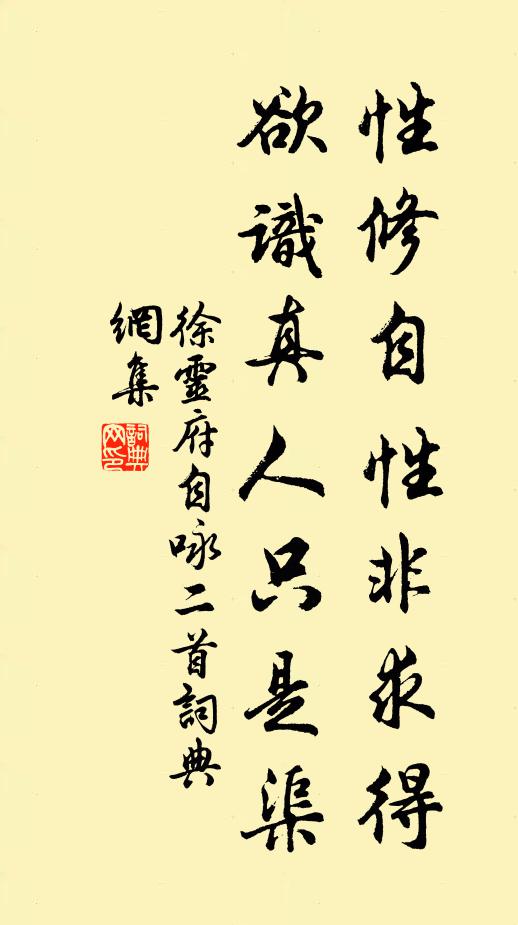 性修自性非求得
欲識真人只是渠
徐靈府自咏二首詞典
網集
詞典網印